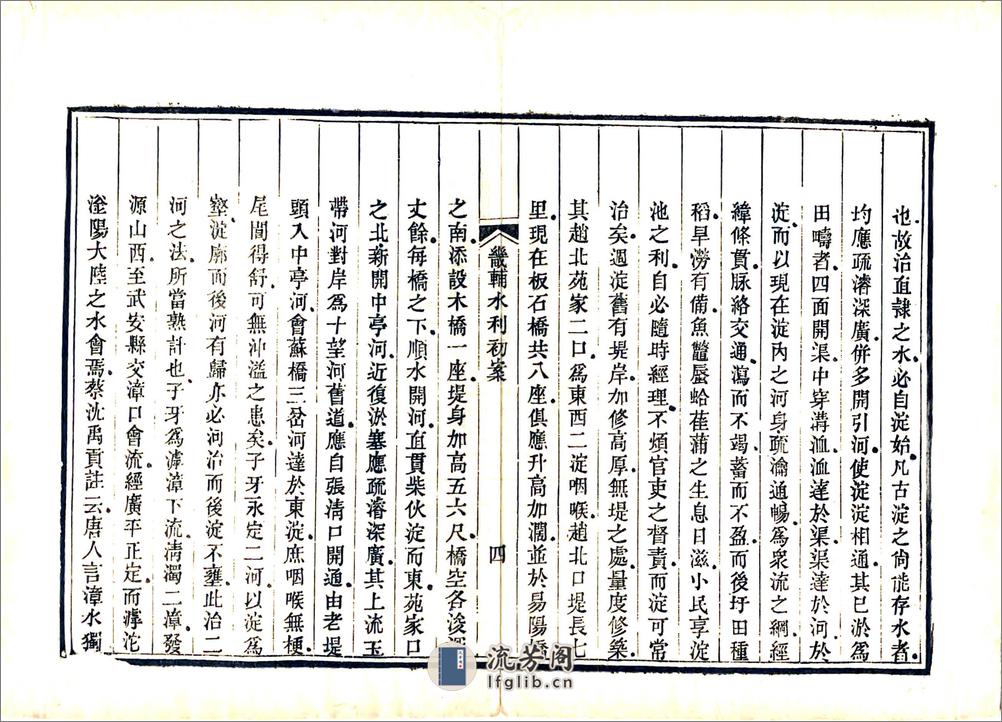 也故治直隸之水必自淀始凡古淀之尙能存水者
均應疏濬深廣併多開引河使淀淀相通其已淤為
田疇者四面開渠中穿溝洫洫達於渠渠達於河於
淀而以現在淀內之河身疏瀹通暢為衆流之綱經
緯條貫脈絡交通瀉而不竭蓄而不盈而後圩田種
稻旱澇有備魚鼈蜃蛤萑蒲之生息日滋小民享淀
池之利自必隨時經理不煩官吏之督責而淀可常
治矣週淀舊有堤岸加修高厚無堤之處量度修築
其趙北苑家二口為東西二淀咽喉趙北口堤長七
里現在板石橋共八座俱應升高加濶並於易陽橋
畿輔水利初案
四
之南添設木橋一座堤身加高五六尺橋空各浚深
丈餘每橋之下順水開河直貫柴伙淀而東苑家口
之北新開中亭河近復淤塞應疏濬深廣其上流玉
帶河對岸為十望河舊道應自張清口開通由老堤
頭入中亭河會蘇橋三岔河達於東淀庶咽喉無梗
尾閭得舒可無沖溢之患矣子牙永定二河以淀為
壑淀廓而後河有歸亦必河治而後淀不壅此治二
河之法所當熟計也子牙為滹漳下流清濁二漳發
源山西至武安縣交漳口會流經廣平正定而滹沱
滏陽大陸之水會焉蔡沈禹貢註云唐人言漳水獨
流芳阁
lfglib.cn